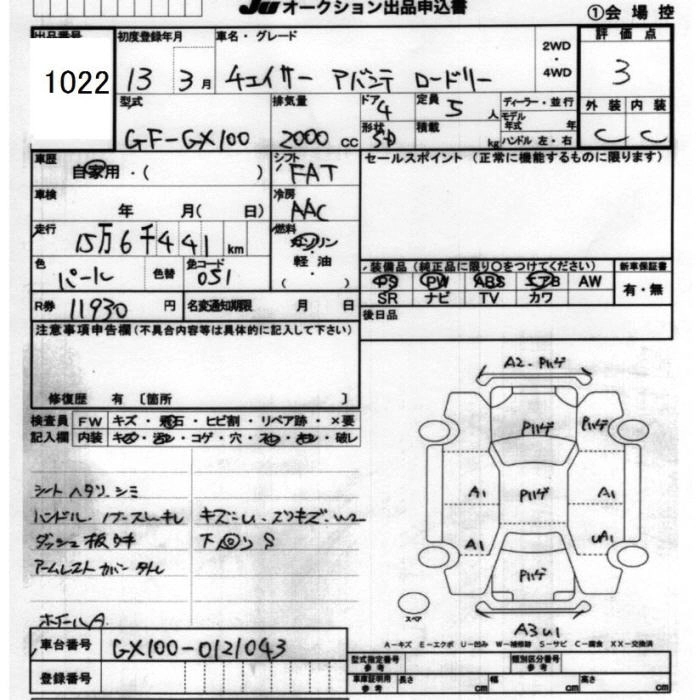 JU オークション出品申込書
①会場控
出品番号 初度登録年月 車名・グレード 2WD・4WD 評価点
1022 13 3月 チェイサー アバンテ ロードリー 3
型式 排気量 ドア 4 定員 5 人 ディーラー・並行 外装 内装
GF-GX100 2000 cc 形状 SD 積載 kg モデル年式 年 C C
ハンドル 左・右
車歴 自家用・( ) シフト FAT セールスポイント(正常に機能するものに限ります)
車検 年 月( 日) 冷房 AAC
走行 15万6千441 km 燃料 ガソリン・軽油 ( )
色 パール 色替 色コード 051 装備品(純正品に限り○をつけてください) 新車保証書
PS PW ABS エアB AW 有・無
SR ナビ TV カワ
R券 11930 円 名変通知期限 月 日 後日品
注意事項申告欄(不具合内容等は具体的に記入して下さい)
修復歴 有 〔箇所 〕
検査員 FW キズ・飛石・ヒビ割・リペア跡・×要
記入欄 内装 キズ・汚レ・コゲ・穴・スレ・キレ・破レ
シート ヘタリ シミ
ハンドル・ キズ凹・スリキズ・W2
ダッシュ板 下回りS
アームレスト カバー
ホイールA
A2・Pハゲ
Pハゲ Pハゲ
A1 Pハゲ A1
A1 UA1
Pハゲ
スペア
A3U1
A-キズ E-エクボ U-凹み W-補修跡 S-サビ C-腐食 XX-交換済
車台番号 GX100-0121043
登録番号
型式指定番号 参考 類別区分番号 参考
車庫証明用 参考 長さ cm 幅 cm 高さ cm